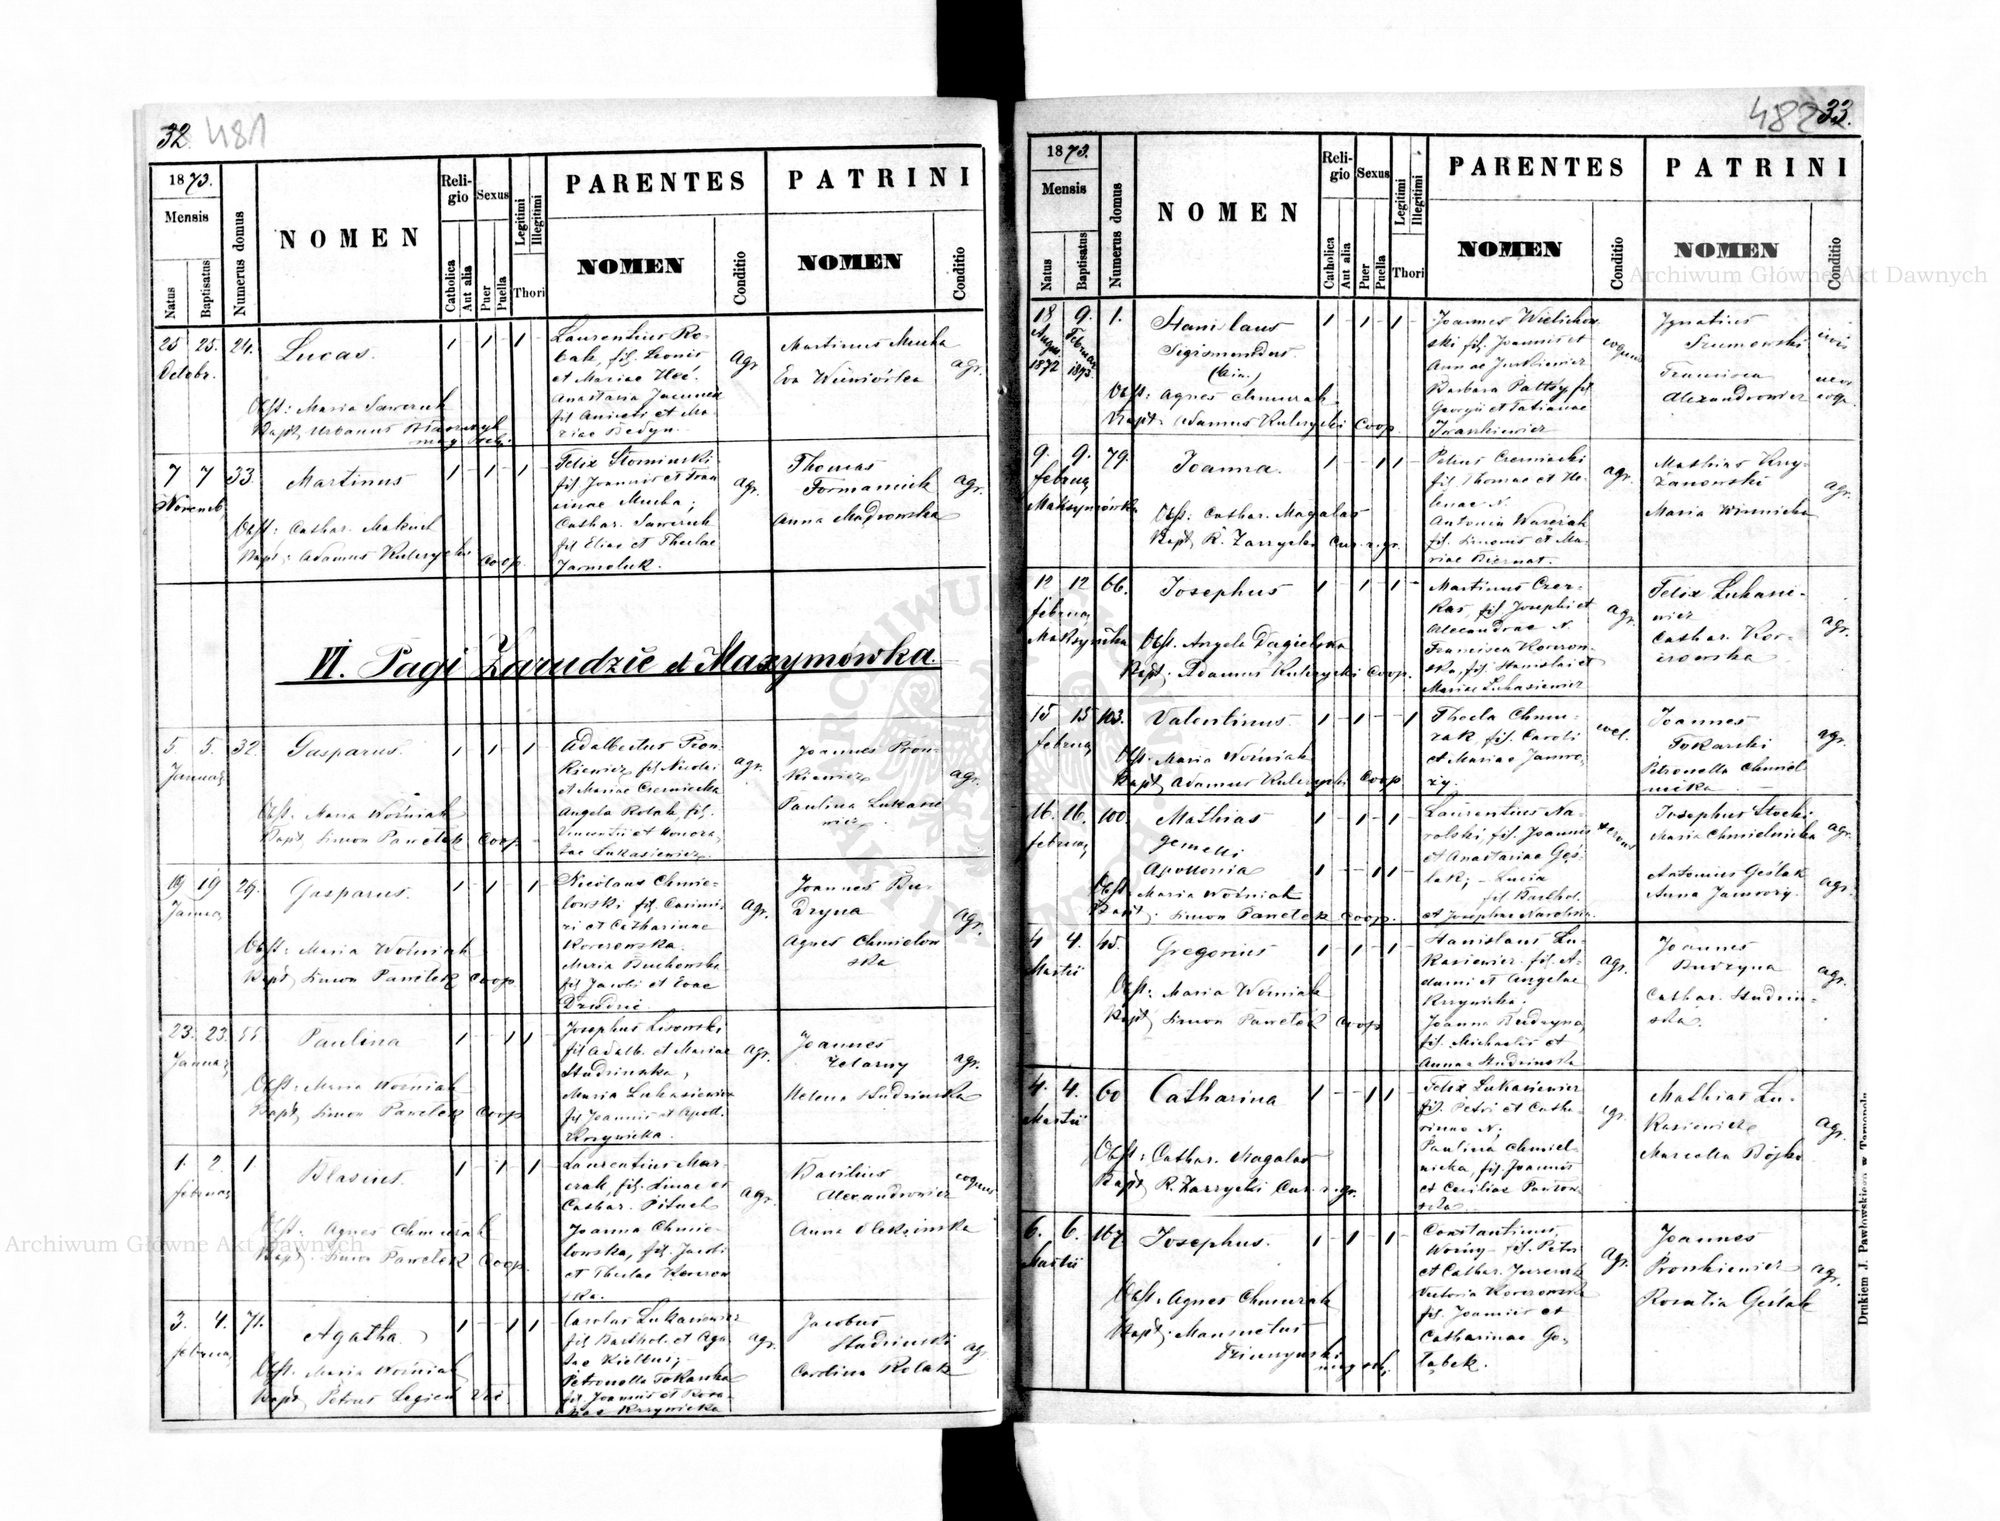 32 481
1873.
Mensis
Natus
Baptisatus
Numerus domus
NOMEN
Reli-
gio
Catholica
Aut alia
Sexus
Puer
Puella
Legitimi
Illegitimi
Thori
PARENTES
NOMEN
Conditio
PATRINI
NOMEN
Conditio
25 25. 24.
Octobr.
Lucas.
Obst: Maria Saweruk
Bapt. Urbanus
Laurentius Ro-
bak, fil. Leonis
et Mariae
Anastasia
fil. Aniceti et Ma-
riae Bedyn.
agr.
Martinus Mucha
Eva
agr.
7 7 33.
Novemb.
Martinus
Obst: Cathar. Makuch
Bapt: Adamus Kulczycki coop.
Felix Słomiński
fil. Joannis et Fran
cinae Mucha;
Cathar. Saweruk
fil. Eliae et Theclae
Jarmoluk.
agr.
Thomas
Formaniuk
Anna Mądrowska
agr.
VI. Pagi Zarudzie et Maxymówka.
5. 5. 32.
Januar.
Gasparus.
Obst. Maria Woźniak
Bapt. Simon Pawełek coop.
Adalbertus Pron-
kiewicz fil. Nicolai
et Mariae Czerniecka
Angela Rolak, fil.
Vincentii et Honora-
tae Lukasiewicz.
agr.
Joannes Pron-
kiewicz
Paulina Lukasie
wicz.
agr.
19 19 29.
Januar.
Gasparus.
Obst: Maria Woźniak
Bapt. Simon Pawełek coop.
Nicolaus Chmie-
lowski fil. Casimi-
ri et Catharinae
Korczowska.
Maria Buchowska
fil. Jacobi et Evae
Dzudzic.
agr.
Joannes Bu-
dzyna
Agnes Chmielow
ska
agr.
23. 23. 55
Januar.
Paulina
Obst: Maria Woźniak
Bapt. Simon Pawełek coop
Josephus Lisowski
fil. Adalb. et Mariae
Studzinska,
Maria Lukasiewicz
fil. Joannis et Apoll.
Krzywicka.
agr.
Joannes
Zelazny
Helena Studzinska
agr.
1. 2. 1.
Februar.
Blasius.
Obst: Agnes Chmurak
Bapt. Simon Pawełek coop.
Laurentius Mar-
czak, fil. Lucae et
Cathar. Pituch
Joanna Chmie-
lowska, fil. Jacobi
et Theclae Korczow
ska.
agr.
Basilius
Alexandrowicz
Anna Oleksinska
coquus
3. 4. 71.
Februar.
Agatha
Obst. Maria Woźniak
Bapt. Petrus Legień
Carolus Lukasiewicz
fil. Barthol. et Aga-
tae Kiełbus;
Petronella Tokarska
fil. Joannis et Rosa-
liae Krzywicka
agr.
Jacobus
Studzinski
Carolina Rolak
agr.
482 33.
1873.
Mensis
Natus
Baptisatus
Numerus domus
NOMEN
Reli-
gio
Catholica
Aut alia
Sexus
Puer
Puella
Legitimi
Illegitimi
Thori
PARENTES
NOMEN
Conditio
PATRINI
NOMEN
Conditio
18 9. 1.
August. Februar
1872 1873.
Stanislaus
Sigismundus.
(bin.)
Obst: Agnes Chmurak
Bapt: Adamus Kulczycki coop.
Joannes Wielichow
ski fil. Joannis et
Annae Jurkiewicz
Barbara Pattoy fil.
Georgii et Tatianae
Iwaszkiewicz
coquus
Ignatius
Szumowski
Francisca
Alexandrowicz
civis
uxor
coqu.
9. 9. 79.
Februar
Maksymówka
Joanna.
Obst: Cathar. Magalas
Bapt. R. Zarzycki Cur. r. gr.
Petrus Czerniecki
fil. Thomae et He-
lenae N.
Antonia Waseiak
fil. Simonis et Ma-
riae Biernat.
agr.
Mathias Krzy-
żanowski
Maria Winnicka
agr.
12 12 66.
Februar.
Maksymówka
Josephus
Obst. Angela Dągielska
Bapt. Adamus Kulczycki coop.
Martinus Czer-
kas, fil. Josephi et
Alexandrae N.
Francisca Korczow-
ska, fil. Stanislai et
Mariae Lukasiewicz
agr.
Felix Lukasie-
wicz
Cathar. Kor-
czowska
agr.
15 15 103.
Februar.
Valentinus.
Obst. Maria Woźniak
Bapt. Adamus Kulczycki coop
Thecla Chmu-
rak, fil. Caroli
et Mariae Jawro-
zy.
Joannes
Tokarski
Petronella Chmiel
nicka.
agr.
16. 16. 100.
Februar.
Mathias
gemelli
Apollonia
Obst. Maria Woźniak
Bapt. Simon Pawełek coop.
Laurentius Na-
rolski, fil. Joannis
et Anastasiae Gęś-
lak; Lucia
fil. Barthol.
et Josephae Narolska.
Josephus Stocki
Maria Chmielnicka
agr.
Antonius Gęślak
Anna Jaworzy
agr.
4 4. 45.
Martii
Gregorius
Obst: Maria Woźniak
Bapt. Simon Pawełek coop
Stanislaus Lu-
kasiewicz fil. A-
dami et Angelae
Krzywicka.
Joanna Budzyna,
fil. Michaelis et
Annae Studzinska
agr.
Joannes
Budzyna
Cathar. Studzin-
ska.
agr.
4. 4. 60
Martii
Catharina
Obst: Cathar. Magalas
Bapt. R. Zarzycki Cur. r. gr.
Felix Lukasiewicz
fil. Petri et Catha-
rinae N.
Paulina Chmiel-
nicka, fil. Joannis
et Ceciliae
agr.
Mathias Lu-
kasiewicz
Marcella Bojko
agr.
6. 6. 167.
Martii
Josephus.
Obst. Agnes Chmurak
Bapt. Mansuetus
Constantinus
Woźny fil. Petri
et Cathar.
Victoria Korczowska
fil. Joannis et
Catharinae Go-
łąbek.
agr.
Joannes
Pronkiewicz
Rosalia Gęślak
agr.
Drukiem J. Pawłowskiego w Tarnopolu
Archiwum Główne Akt Dawnych
Archiwum Główne Akt Dawnych